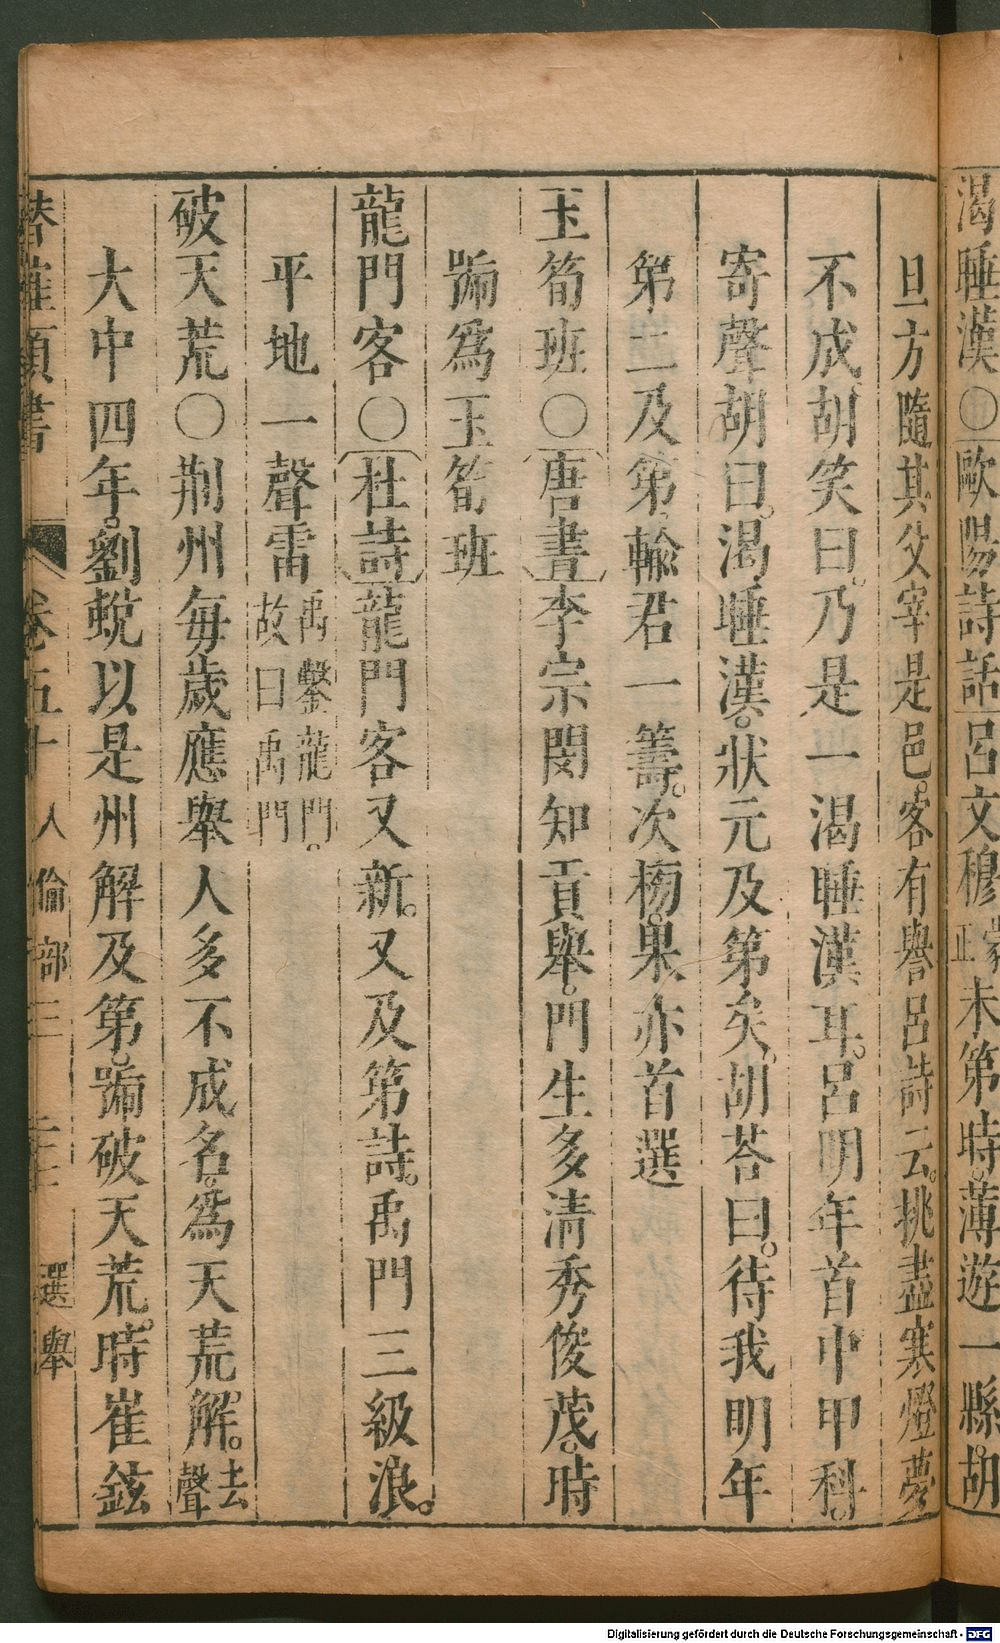 渴睡漢○歐陽詩話呂文穆蒙正未第時。薄遊一縣。胡
旦方隨其父宰是邑。客有譽呂詩云。挑盡寒燈夢
不成胡笑曰。乃是一渴睡漢耳。呂明年首中甲科。
寄聲胡曰。渴睡漢。狀元及第矣。胡荅曰。待我明年
第二及第輸君一籌。次榜。果亦首選
玉筍班○唐書李宗閔知貢舉。門生多清秀俊茂。時
號為玉筍班
龍門客○杜詩龍門客又新。又及第詩。禹門三級浪。
平地一聲雷禹鑿龍門。故曰禹門
破天荒○荆州每歲應舉人多不成名。為天荒解。去聲
大中四年。劉蛻以是州解及第。號破天荒。時崔鉉
類書 卷五十 人倫部三 選舉
Digitalisierung gefördert durch die Deutsche Forschungsgemeinschaft - DFG